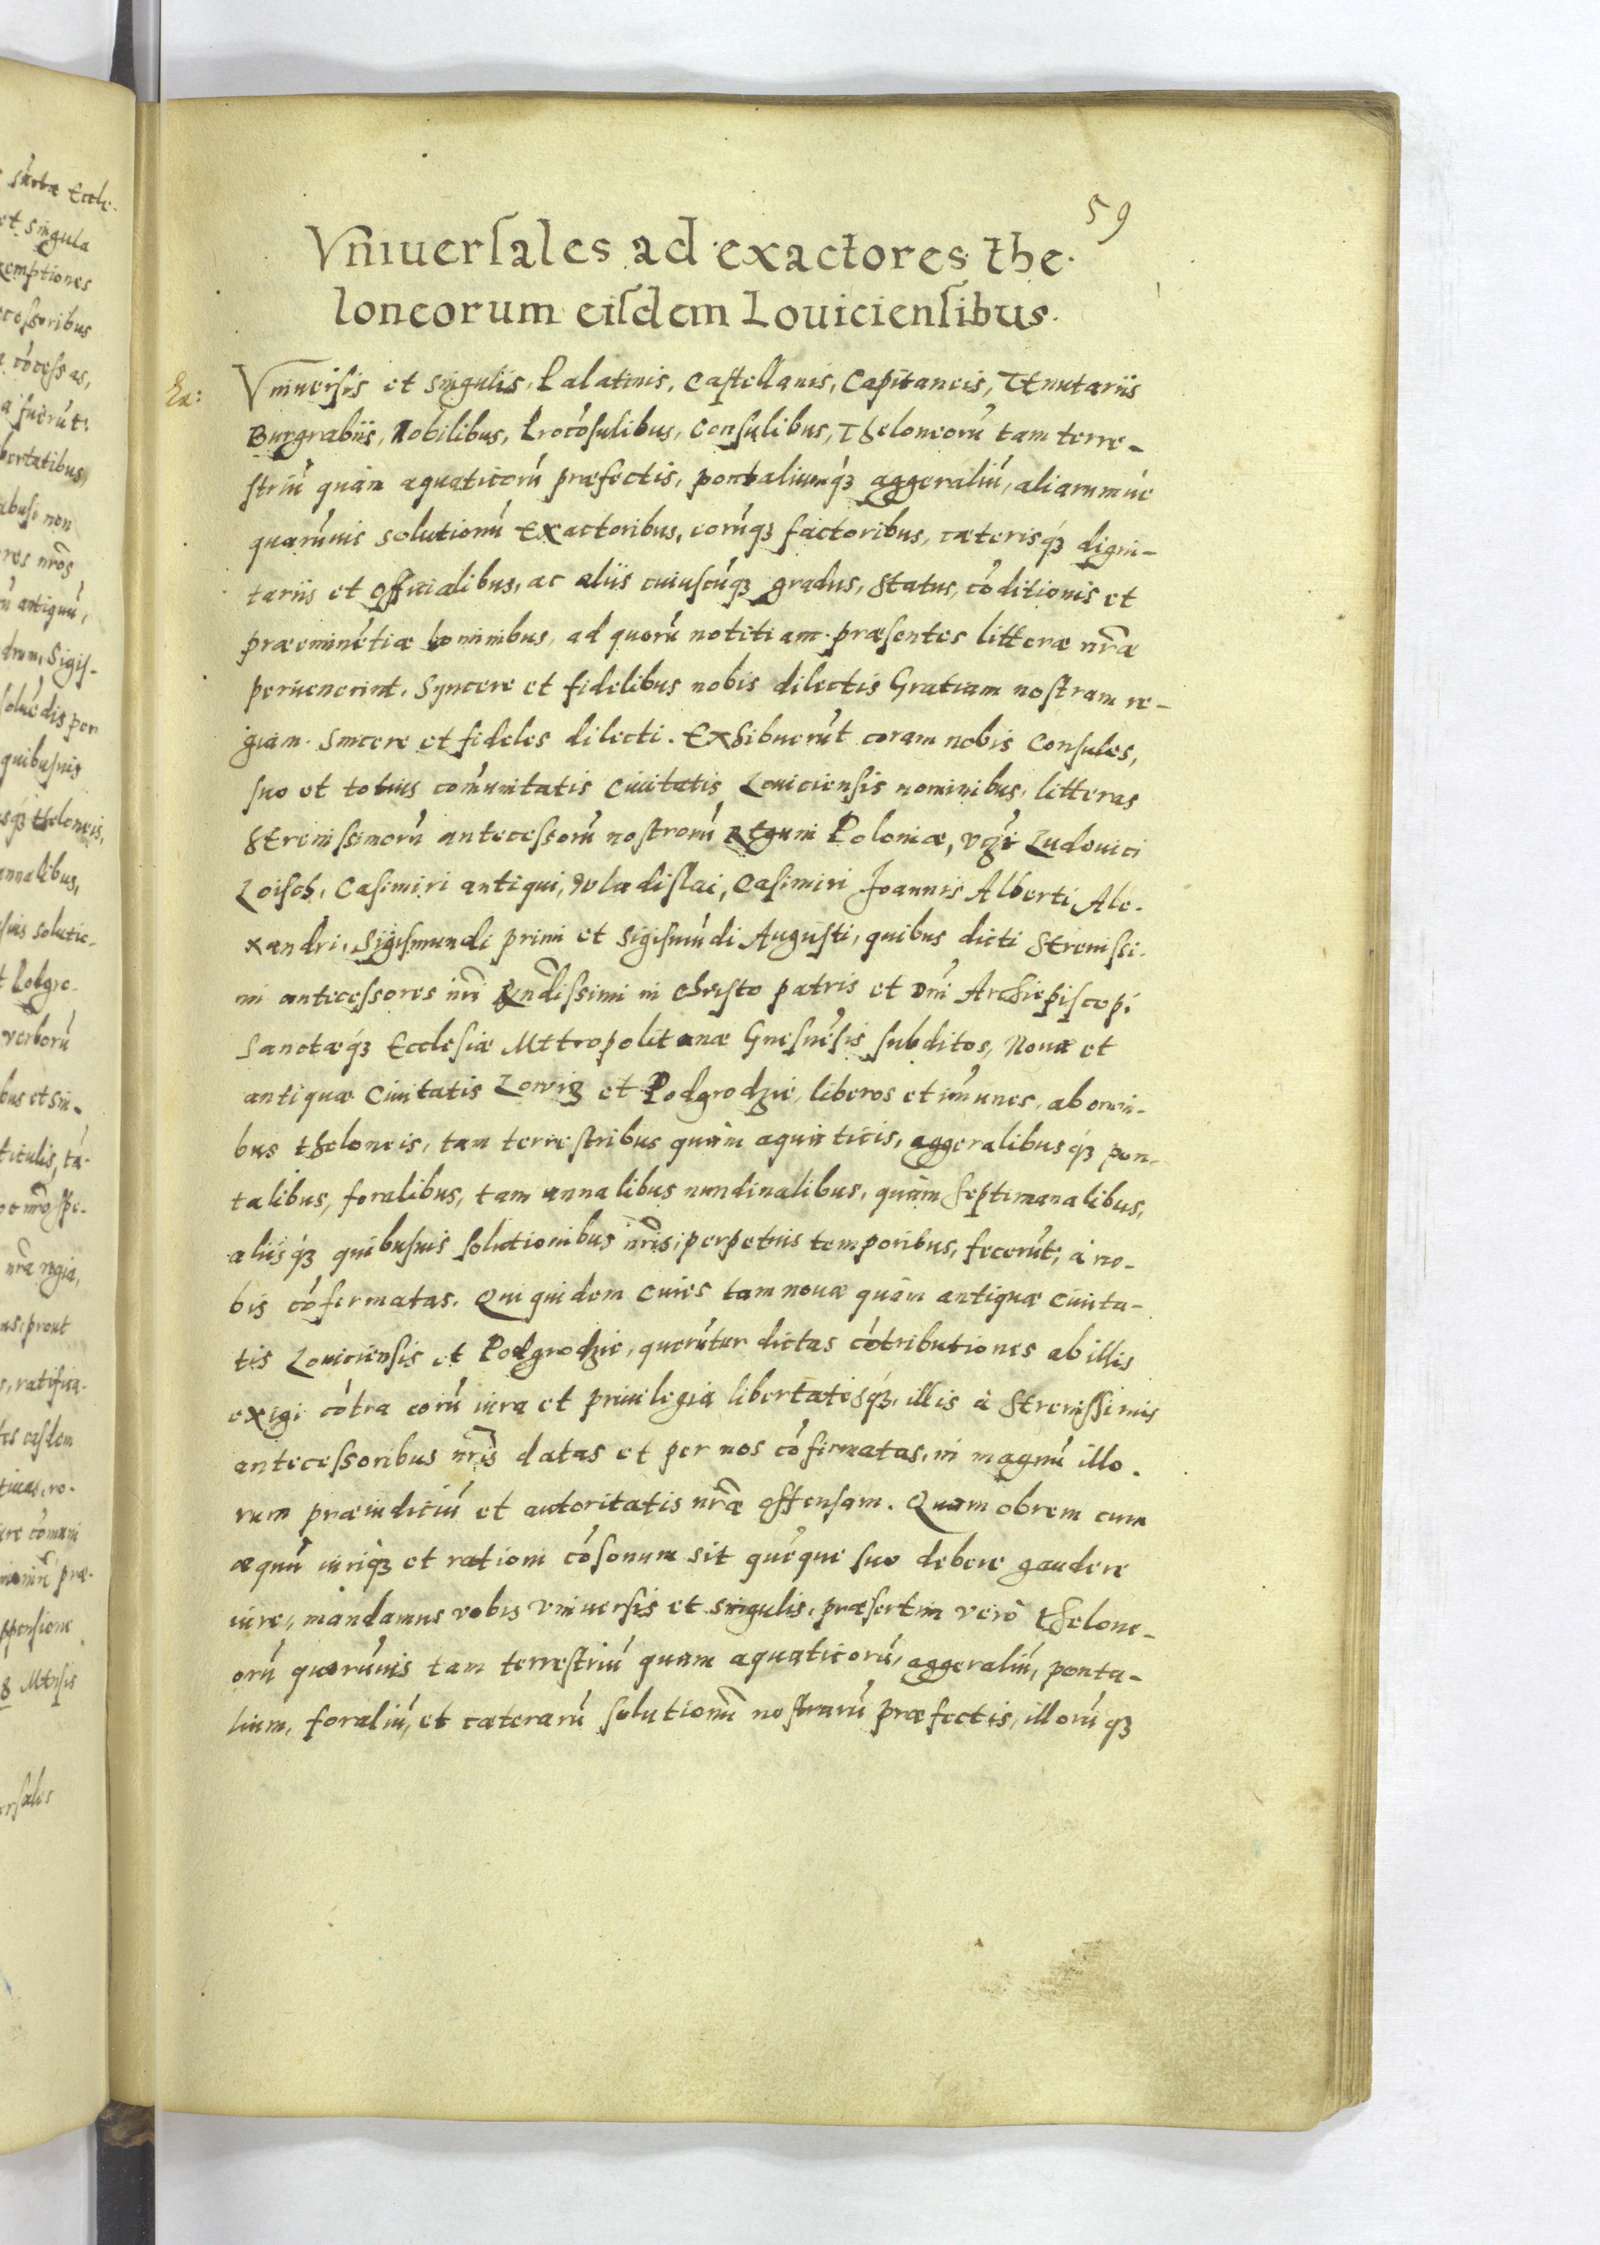 59
Vniuersales ad exactores the-
loneorum eisdem Louiciensibus.
Ex:
Vniuersis et singulis, Palatinis, Castellanis, Capitaneis, Tenutariis
Burgrabiis, Nobilibus, Procōsulibus, Consulibus, Theloneorū tam terre-
striū quàm aquaticorū præfectis, pontaliumqꝫ aggeraliū, aliarumúe
quarūuis solutionū Exactoribus, eorūqꝫ factoribus, cæterisqꝫ digni-
tariis et officialibus, ac aliis cuiuscūqꝫ gradus, status, cōditionis et
præeminētiæ hominibus, ad quorū notitiam præsentes litteræ nr̄æ
peruenerint. Syncere et fidelibus nobis dilectis Gratiam nostram re-
giam. Sincere et fideles dilecti. Exhibuerūt coram nobis Consules,
suo et totius com̄unitatis Ciuitatis Louiciensis nominibus, litteras
Serenissimorū antecessorū nostrorū Regum Poloniæ, vꝫ Ludouici
Loisch, Casimiri antiqui, Wladislai, Casimiri Joannis Alberti, Ale-
xandri, Sigismundi primi et Sigismūdi Augusti, quibus dicti Serenissi-
mi antecessores nr̄i Rn̄dissimi in Christo patris et Dn̄i Archiepiscopi
Sanctæqꝫ Ecclesiæ Metropolitanæ Gnesnēsis subditos, Nouæ et
antiquæ Ciuitatis Lowiꝫ et Podgrodzie, liberos et im̄unes, ab omni-
bus theloneis, tam terrestribus quàm aquaticis, aggeralibusqꝫ pon-
talibus, foralibus, tam annalibus nundinalibus, quàm septimanalibus,
aliisqꝫ quibusuis solutionibus nr̄is, perpetuis temporibus, fecerūt, à no-
bis cōfirmatas. Qui quidem ciues tam nouæ quàm antiquæ Ciuita-
tis Louiciensis et Podgrodzie, querūtur dictas cōtributiones ab illis
exigi cōtra eorū iura et priuilegia libertatesqꝫ, illis à Serenissimis
antecessoribus nr̄is datas et per nos cōfirmatas, in magnū illo-
rum præiudiciū et autoritatis nr̄æ offensam. Quam obrem cum
æquū iuriqꝫ et rationi cōsonum sit quēque suo debere gaudere
iure, mandamus vobis vniuersis et singulis, præsertim verò thelone-
orū quorūuis tam terrestriū quam aquaticorū, aggeraliū, ponta-
lium, foraliū, et cæterarū solutionū nostrarū præfectis, illorūqꝫ